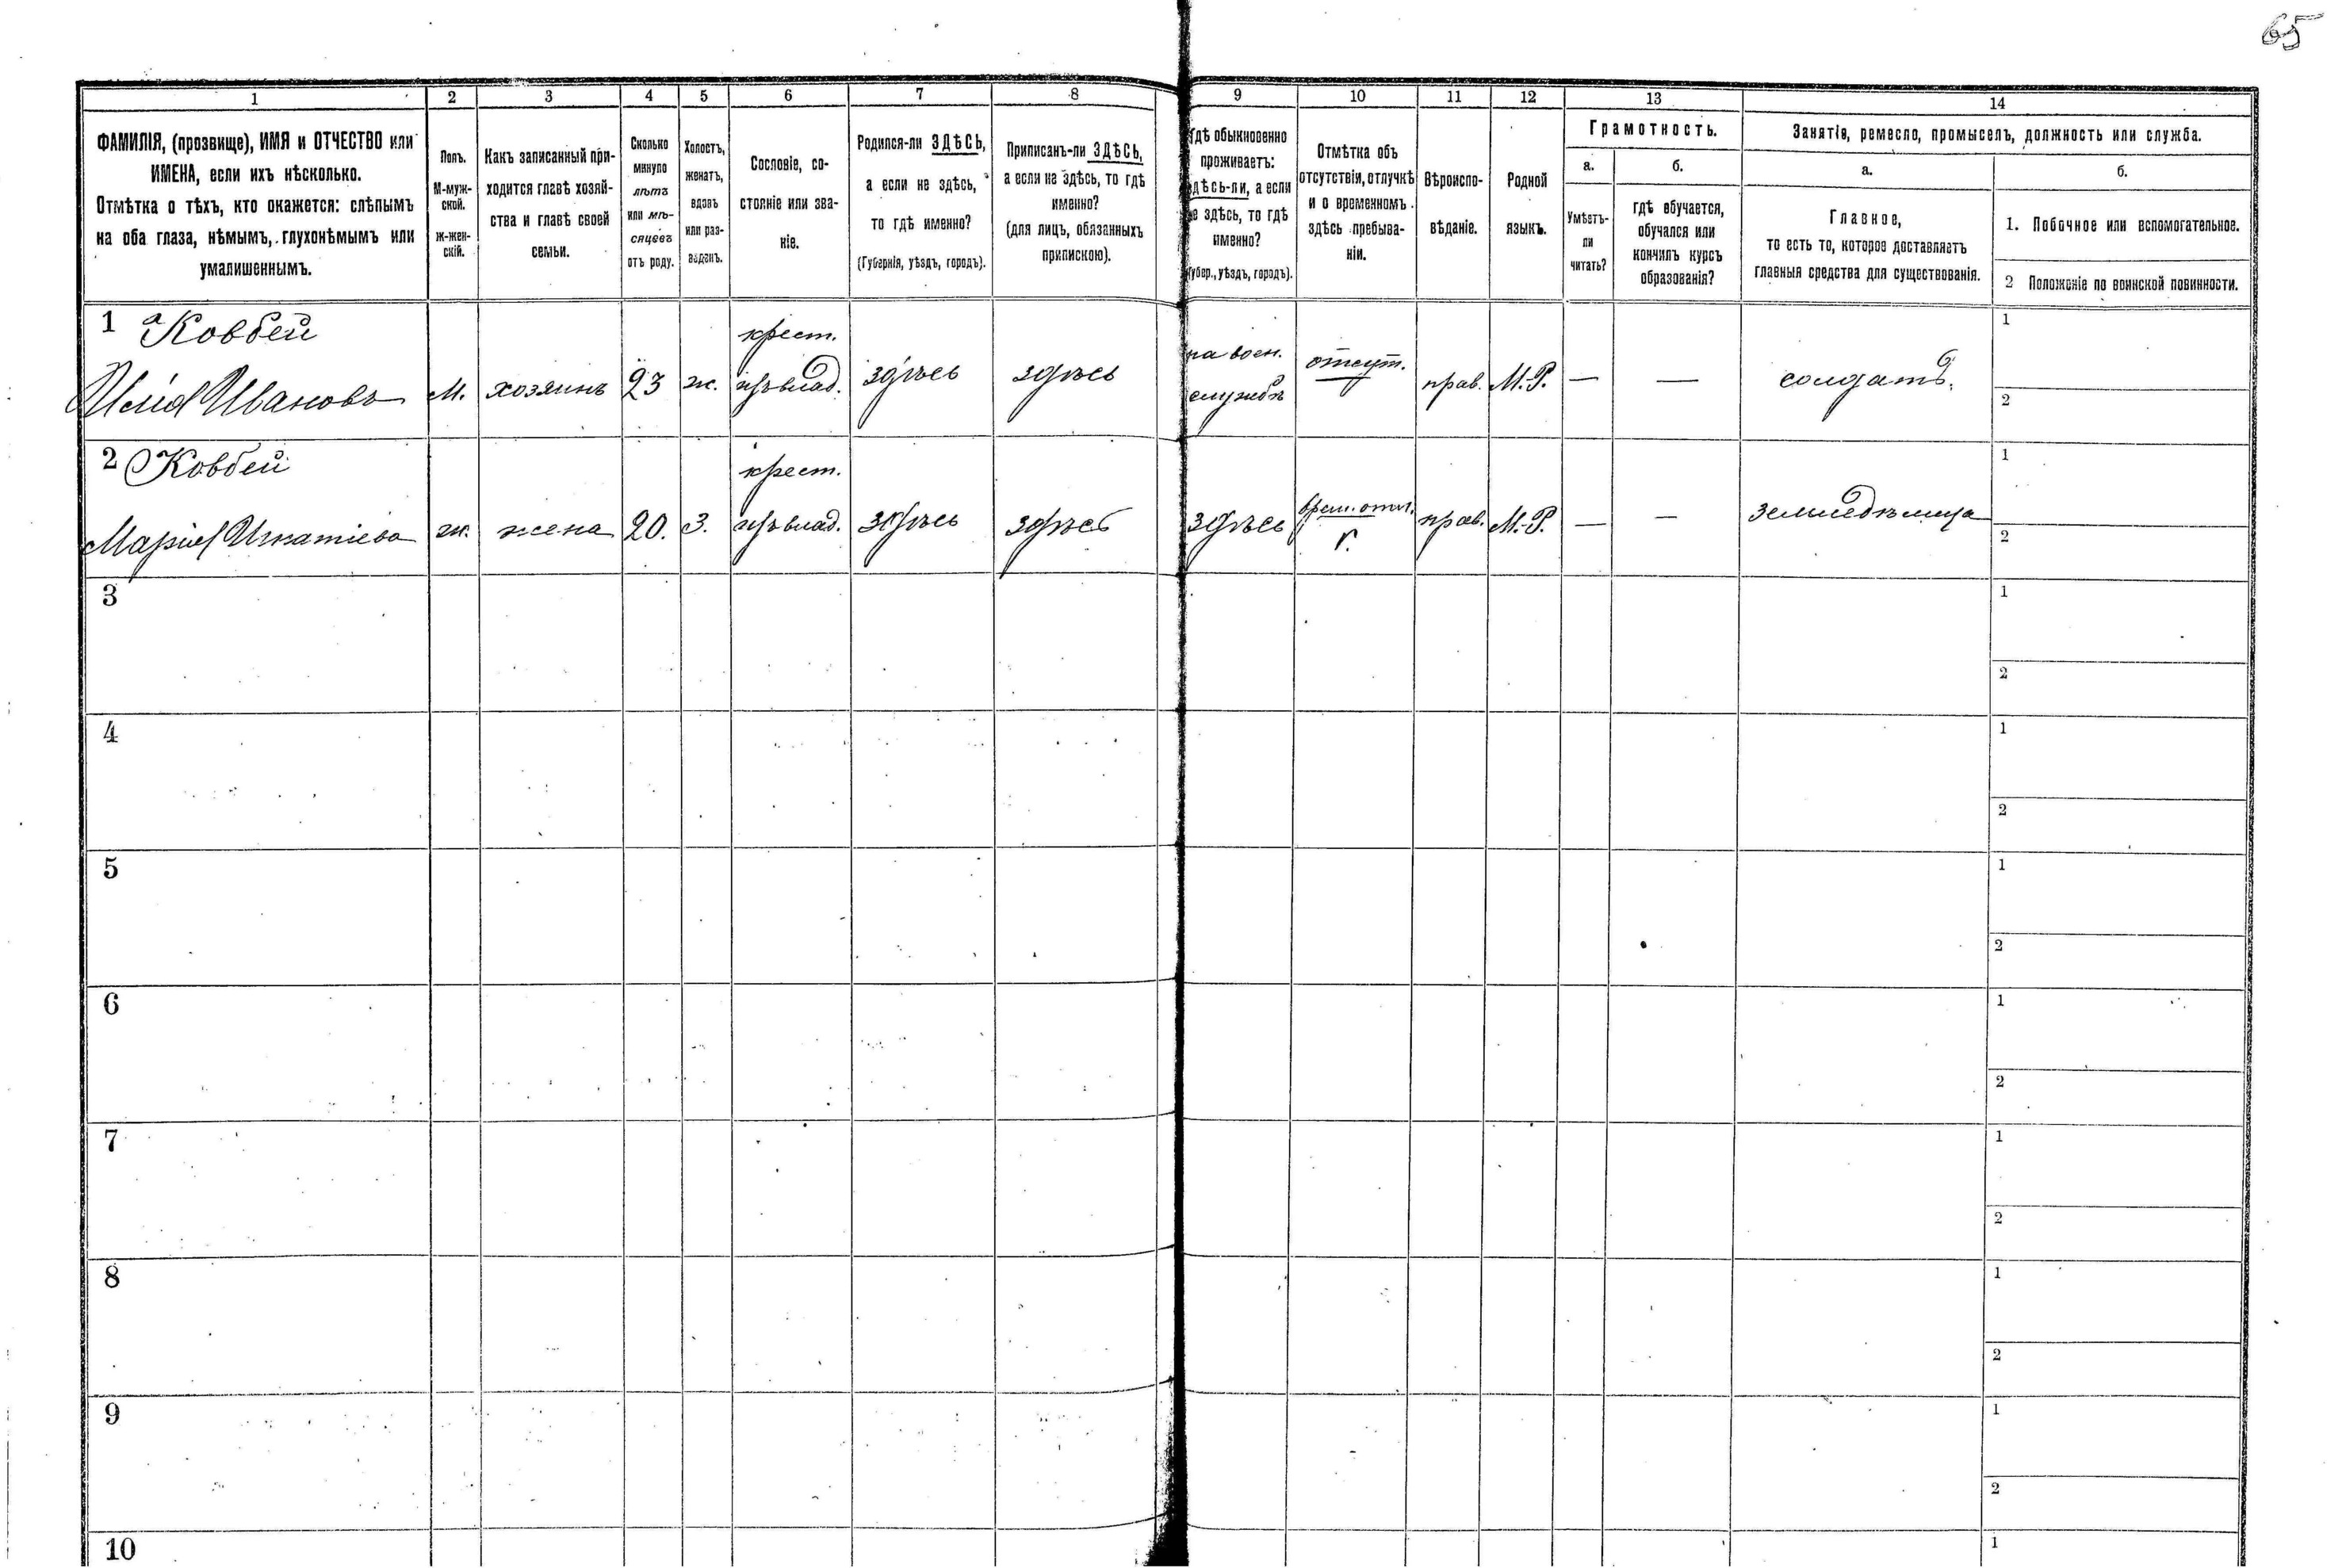 65
1 2 3 4 5 6 7 8 9 10 11 12 13 14
ФАМИЛІЯ, (прозвище), ИМЯ и ОТЧЕСТВО или
ИМЕНА, если ихъ нѣсколько.
Отмѣтка о тѣхъ, кто окажется: слѣпымъ
на оба глаза, нѣмымъ, глухонѣмымъ или
умалишеннымъ.
Полъ.
М-муж-
ской.
Ж-жен-
скій.
Какъ записанный при-
ходится главѣ хозяй-
ства и главѣ своей
семьи.
Сколько
минуло
лѣтъ
или мѣ-
сяцевъ
отъ роду.
Холостъ,
женатъ,
вдовъ
или раз-
веденъ.
Сословіе, со-
стояніе или зва-
ніе.
Родился-ли ЗДѢСЬ,
а если не здѣсь,
то гдѣ именно?
(Губернія, уѣздъ, городъ).
Приписанъ-ли ЗДѢСЬ,
а если не здѣсь, то гдѣ
именно?
(для лицъ, обязанныхъ
припискою).
Гдѣ обыкновенно
проживаетъ:
здѣсь-ли, а если
не здѣсь, то гдѣ
именно?
(Губер., уѣздъ, городъ).
Отмѣтка объ
отсутствіи, отлучкѣ
и о временномъ
здѣсь пребыва-
ніи.
Вѣроиспо-
вѣданіе.
Родной
языкъ.
Грамотность.
а.
Умѣетъ-
ли
читать?
б.
гдѣ обучается,
обучался или
кончилъ курсъ
образованія?
Занятіе, ремесло, промыселъ, должность или служба.
а.
Главное,
то есть то, которое доставляетъ
главныя средства для существованія.
б.
1. Побочное или вспомогательное.
2 Положеніе по воинской повинности.
1 Ковбей крест. на воен. отсут. 1
Илія Ивановъ М. хозяинъ 23 ж. изъ влад. здѣсь здѣсь службѣ прав. М.-Р. — — солдатъ. 2
2 Ковбей крест. 1
Марія Игнатіева ж. жена 20. з. изъ влад. здѣсь здѣсь здѣсь врем. отл. прав. М.-Р. — — земледѣлица 2
3 1
2
4 1
2
5 1
2
6 1
2
7 1
2
8 1
2
9 1
2
10 1